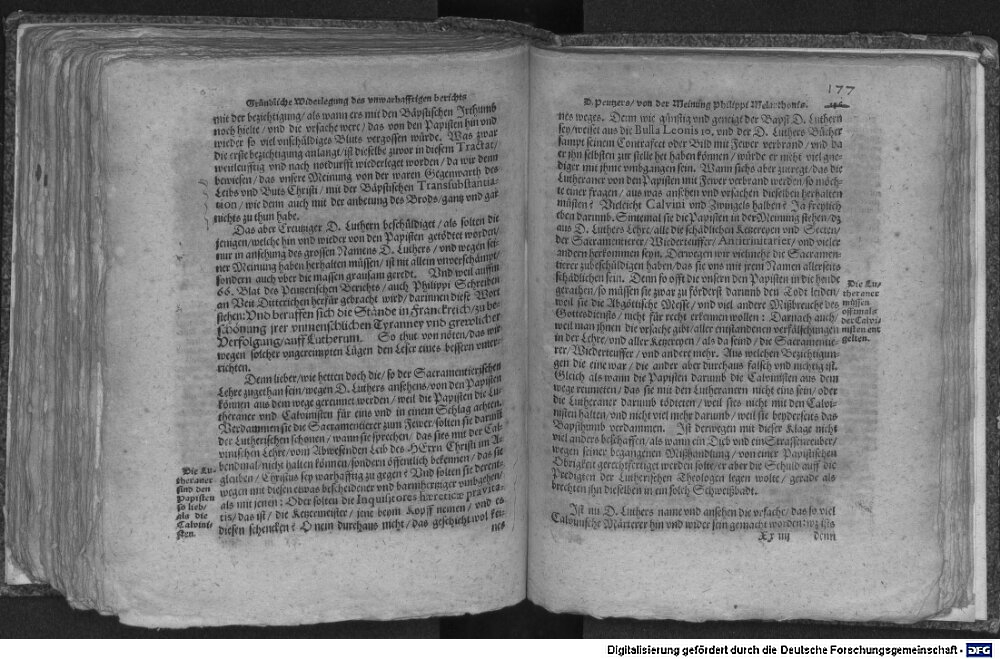 Gründliche Widerlegung des vnwarhafftigen berichts
mit der bezichtigung/ als wann ers mit den Bäpstischen Irthumb
noch hielte/ vnd die vrsache were/ das von den Papisten hin vnd
wieder so viel vnschüldiges Bluts vergossen würde. Was zwar
die erste bezichtigung anlangt/ ist dieselbe zuvor in diesem Tractat/
weitleufftig vnd nach notdurfft wiederleget worden/ da wir denn
bewiesen/ das vnsere Meinung von der waren Gegenwerth des
Leibs vnd Buts Christi/ mit der Bäpstischen Transsubstantia-
tion/ wie denn auch mit der anbetung des Brods/ gang vnd gar
nichts zu thun habe.
Das aber Creutziger D. Luthern beschüldiget/ als solten die
jenigen/ welche hin vnd wieder von den Papisten getödtet worden/
nur in ansehung des grossen Namens D. Luthers/ vnd wegen sei-
ner Meinung haben herhalten müssen/ ist nit allein vnverschämpt/
sondern auch vber die massen grausam geredt. Vnd weil auffm
66. Blat des Peutzerischen Berichts/ auch Philippi Schreiben
an Veit Ditterichen herfür gebracht wird/ darinnen diese Wort
stehen: Vnd beruffen sich die Stände in Franckreich/ zu be-
schönung jrer vnmenschlichen Tyranney vnd grewlicher
Verfolgung/ auff Lutherum. So thut von nöten/ das wir
wegen solcher vngereimpten Lügen den Leser eines bessern vnter-
richten.
Denn lieber/ wie hetten doch die/ so der Sacramentierischen
Lehre zugethan sein/ wegen D. Luthers ansehens/ von den Papisten
können aus dem wege gereumet werden/ weil die Papisten die Lu-
theraner vnd Calvinisten für eins vnd in einem Schlag achten.
Verdammen sie die Sacramentierer zum Fewer/ solten sie darumb
der Lutherischen schonen/ wann sie sprechen/ das sies mit der Cal-
vinischen Lehre/ vom Abwesenden Leib des HErrn Christi im A-
bendmal/ nicht halten können/ sondern öffentlich bekennen/ das sie
gleuben/ Christus sey warhafftig zu gegen? Vnd solten sie derent-
wegen mit diesen etwas bescheidener vnd barmhertziger vmbgehen/
als mit jenen: Oder solten die Inquisitores hæreticæ pravita-
tis/ das ist/ die Ketzermeister/ jene beym Kopff nemen/ vnd es
diesen schencken? O nein durchaus nicht/ das geschicht wol kei-
nes
Die Lu-
theraner
sind den
Papisten
so lieb/
als die
Calvini-
sten.
177
D. Peutzers/ von der Meinung Philippi Melanthonis.
nes weges. Denn wie günstig vnd geneigt der Bapst D. Luthern
sey/ weiset aus die Bulla Leonis 10. vnd der D. Luthers Bücher
sampt seinem Contrafect oder Bild mit Fewer verbrand/ vnd da
er jhn selbsten zur stelle het haben können/ würde er nicht viel gne-
diger mit jhme vmbgangen sein. Wann sichs aber zutregt/ das die
Lutheraner von den Papisten mit Fewer verbrand werden/ so möch-
te einer fragen/ aus was ansehen vnd vrsachen dieselben herhalten
müsten? Vieleicht Calvini vnd Zwingels halben? Ja freylich
eben darumb. Sintemal sie die Papisten in der Meinung stehen/ dz
aus D. Luthers Lehre/ alle die schädlichen Ketzereyen vnd Secten/
der Sacramentierer/ Widerteuffer/ Antitrinitarier/ vnd vieler
andern herkommen seyn. Derwegen wir vielmehr die Sacramen-
tierer zubeschüldigen haben/ das sie vns mit jrem Namen allerseits
schädlichen sein. Denn so offt die vnsern den Papisten in die hende
gerathen/ so müssen sie zwar zu förderst darumb den Todt leiden/
weil sie die Abgötische Messe/ vnd viel andere Mißbreuche des
Gottesdiensts/ nicht für recht erkennen wollen: Darnach auch/
weil man jhnen die vrsache gibt/ aller entstandenen verfälschungen
in der Lehre/ vnd aller Ketzereyen/ als da seind/ die Sacramentie-
rer/ Wiederteuffer/ vnd andere mehr. Aus welchen Bezichtigun-
gen die eine war/ die ander aber durchaus falsch vnd nichtig ist.
Gleich als wann die Papisten darumb die Calvinisten aus dem
wege reumeten/ das sie mit den Lutheranern nicht eins sein/ oder
die Lutheraner darumb tödteten/ weil sies nicht mit den Calvi-
nisten halten/ vnd nicht viel mehr darumb/ weil sie beyderseits das
Bapsthumb verdammen. Ist derwegen mit dieser Klage nicht
viel anders beschaffen/ als wann ein Dieb vnd ein Strassenreuber/
wegen seiner begangenen Mißhandlung/ von einer Papistischen
Obrigkeit gerechtfertiget werden solte/ er aber die Schuld auff die
Predigten der Lutherischen Theologen legen wolte/ gerade als
brechten jhn dieselben in ein solch Schweißbadt.
Ist nu D. Luthers name vnd ansehen die vrsache/ das so viel
Calvinische Märterer hin vnd wider sein gemacht worden:
Xx iiij denn
Die Lu-
theraner
müssen
offtmals
der Calvi-
nisten ent
gelten.
Digitalisierung gefördert durch die Deutsche Forschungsgemeinschaft - DFG